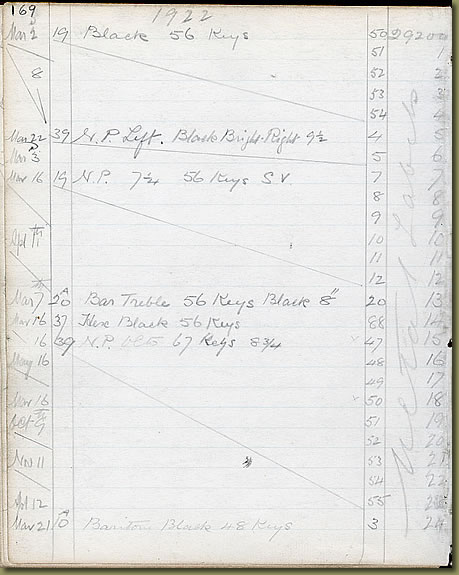 169 1922
Mar 2 19 Black 56 Keys 50 29200
51 1
8 52 2
53 3
54 4
Mar 22 39 N.P. Left. Black Bright-Right 9½ 4 5
Mar 3 5 6
Mar 16 19 N.P. 7¼ 56 Keys S V 7 7
8 8
9 9
Apl 11 10 10
11 11
12 12
Mar 7 20A Bar Treble 56 Keys Black 8" 20 13
Mar 16 37 Hex Black 56 Keys 88 14
16 39 N.P. Oct 67 Keys 8¾ x 47 15
May 16 48 16
49 17
Mar 16 x 50 18
Oct 9 51 19
52 20
Nov 11 53 21
54 22
Apl 12 55 23
Mar 21 Baritone Black 48 Keys 3 24
Metal Labels